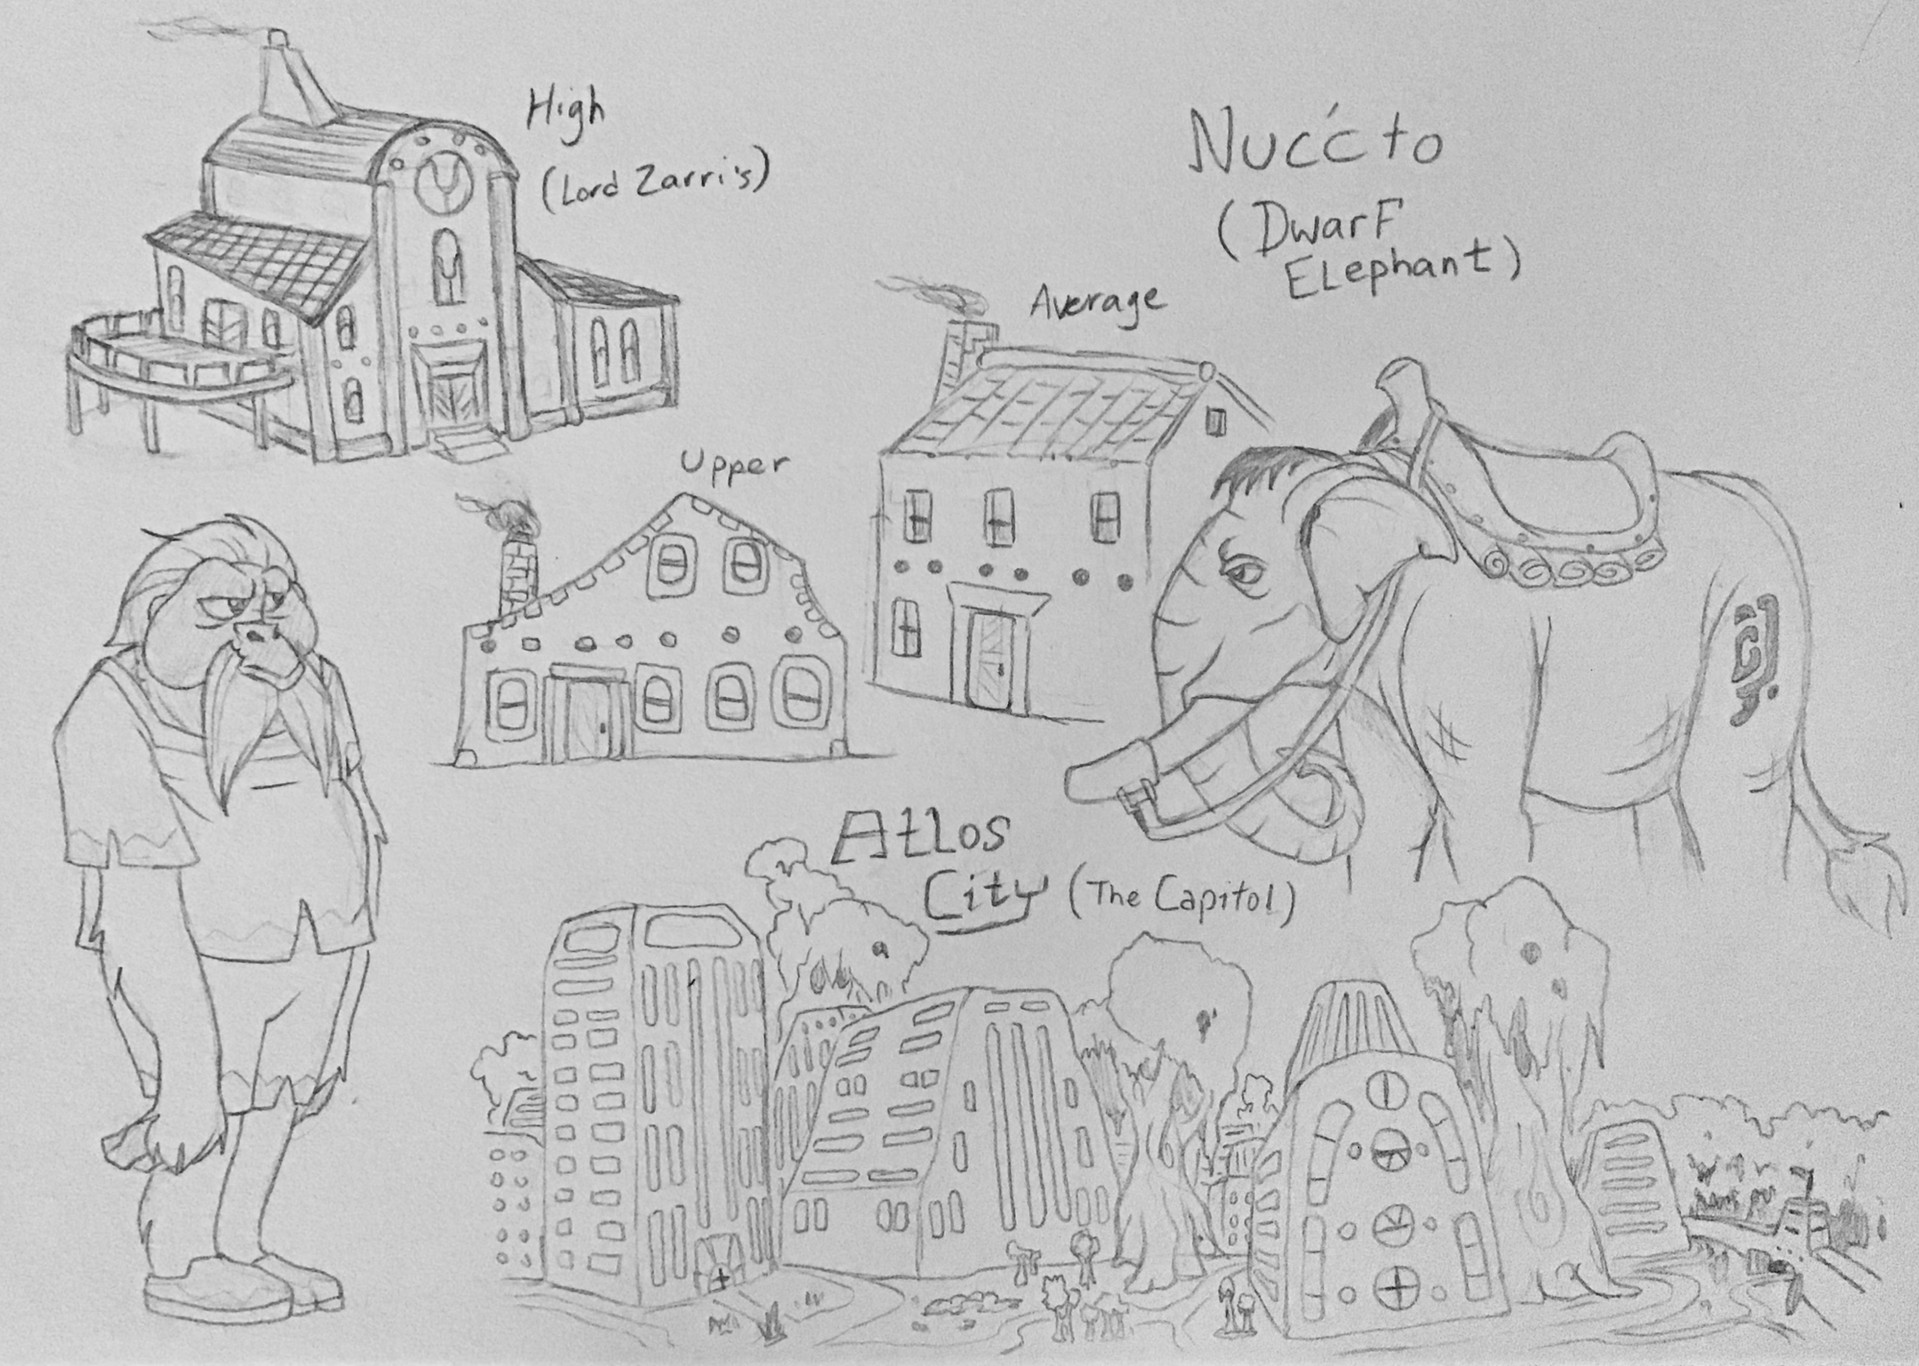 High
(Lord Zarri's)
Nuććto
(Dwarf
Elephant)
Average
Upper
Atlos
City (The Capitol)